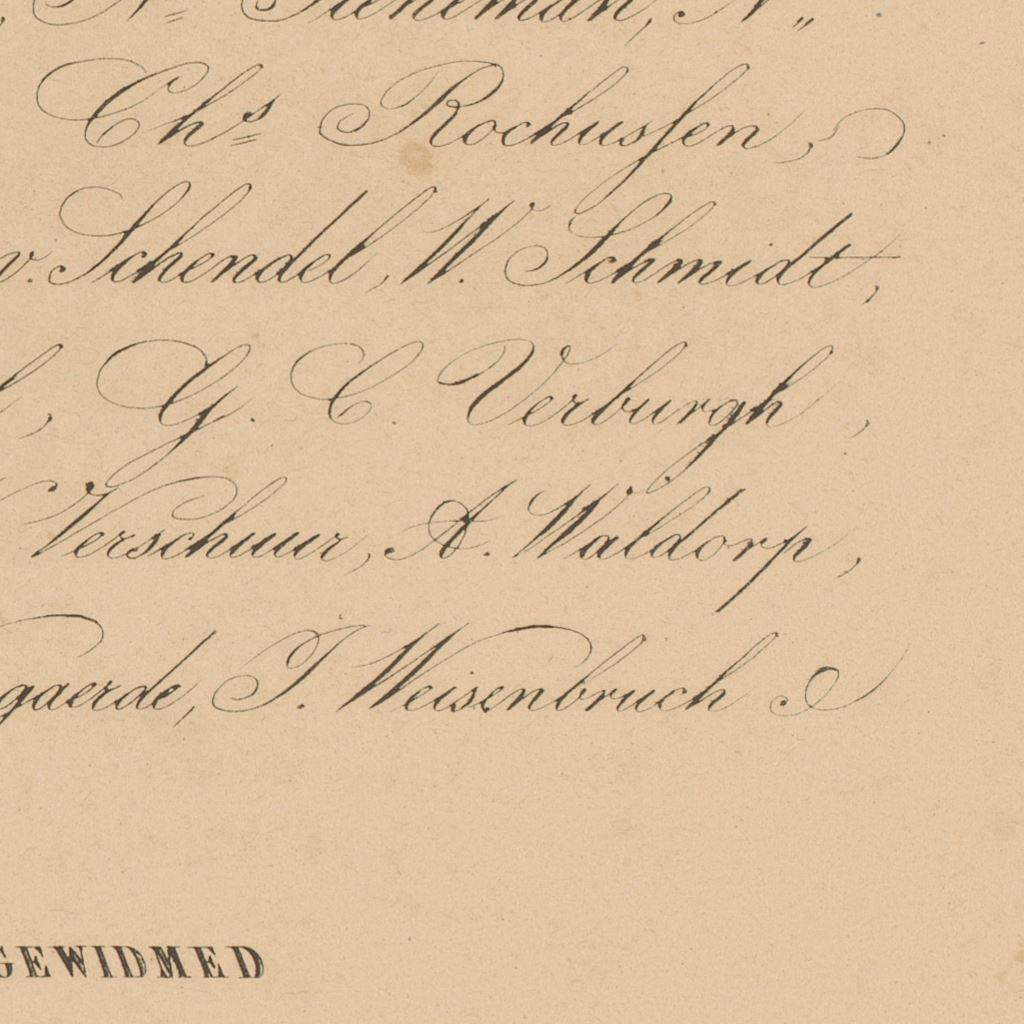 Chs Rochussen,
v. Schendel, W. Schmidt,
, G. C. Verburgh,
Verschuur, A. Waldorp,
gaerde, J. Weisenbruch
GEWIDMED